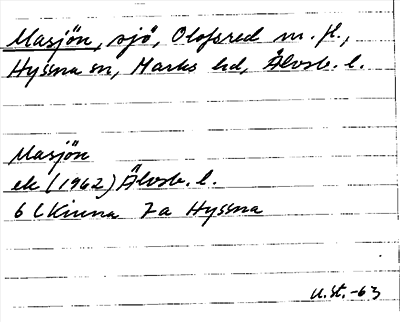 Masjön, sjö, Olofsred m. fl.,
Hyssna sn, Marks hd, Älvsb. l.
Masjön
ek (1962) Älvsb. l.
6 C Kinna 7a Hyssna
u.st.-63